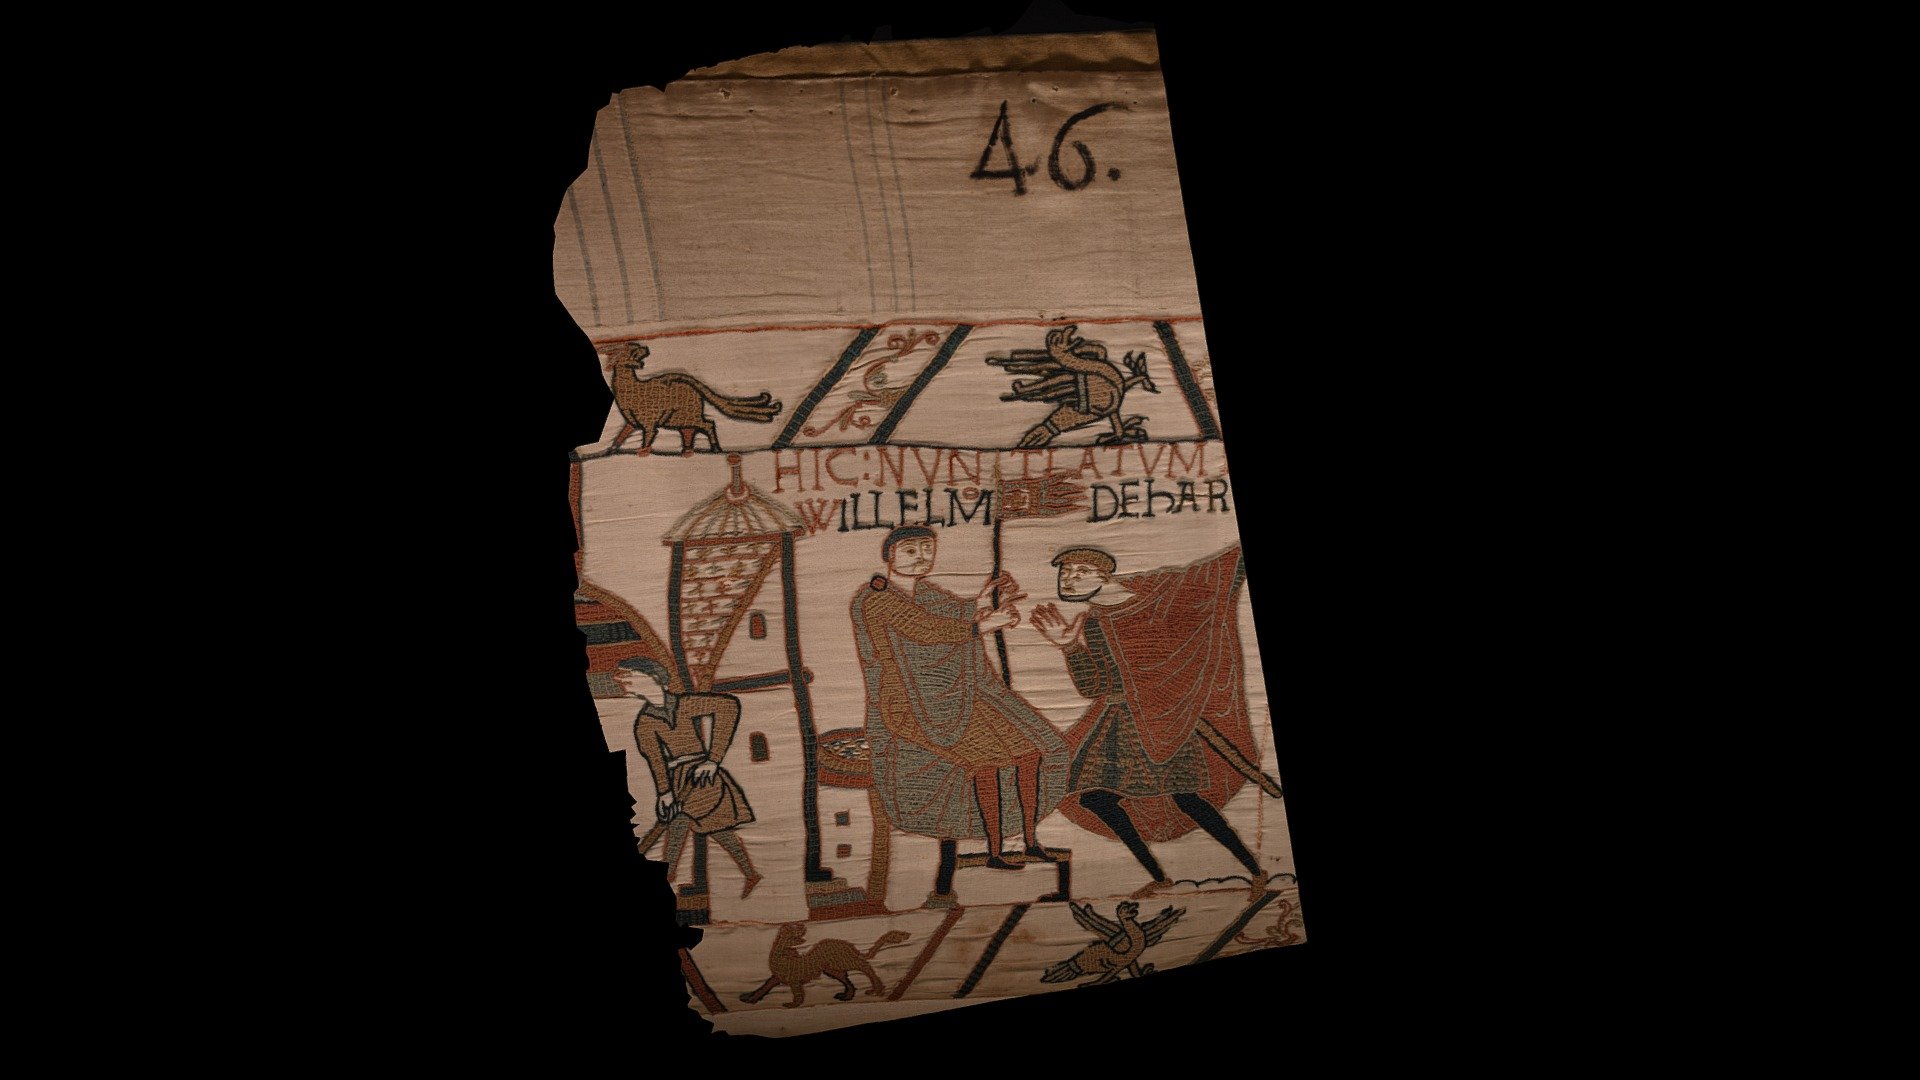 46.
HIC:NVNTIATVM
WILLELMO DEhAR